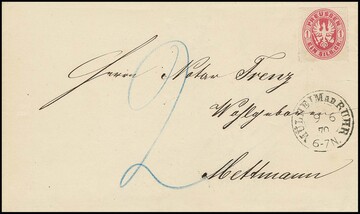 PREUSSEN
EIN SILB.GR.
Herrn Notar Trenz
Wohlgeboren
Mettmann
2
MÜLHEIM A.D. RUHR
9 6
70
6-7N